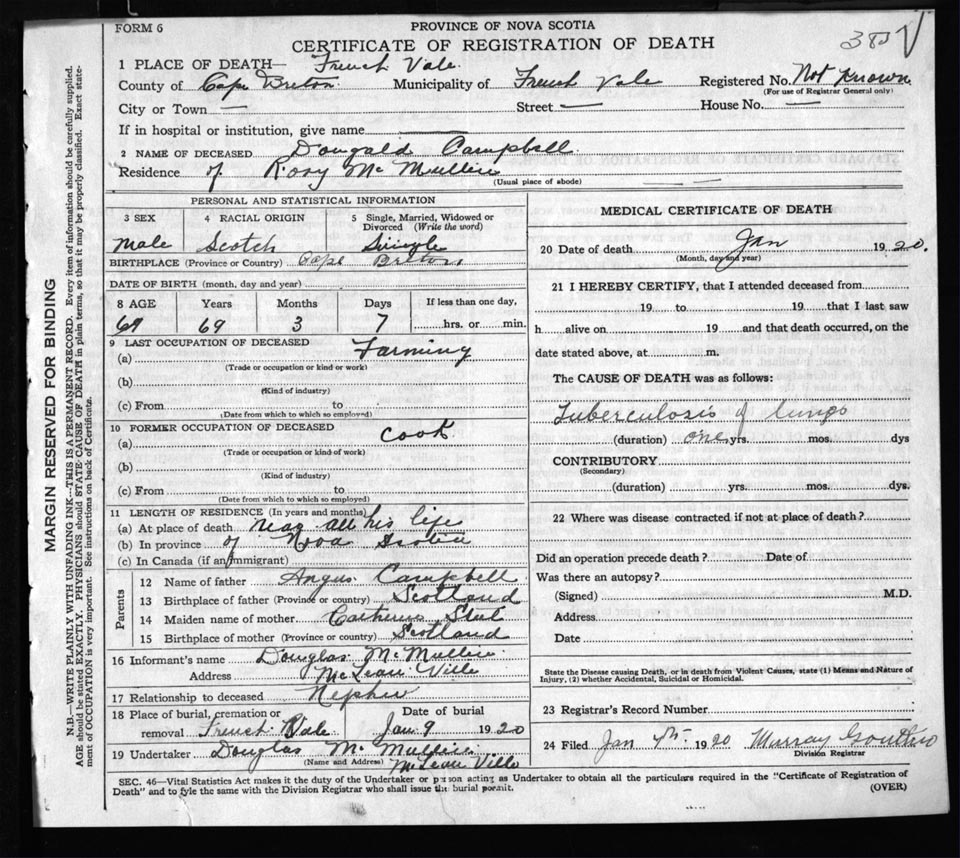 FORM 6
PROVINCE OF NOVA SCOTIA
CERTIFICATE OF REGISTRATION OF DEATH
1 PLACE OF DEATH— French Vale.
County of Cape Breton. Municipality of French Vale Registered No. Not Known
(For use of Registrar General only)
City or Town — Street — House No. —
If in hospital or institution, give name
2 NAME OF DECEASED Dougald Campbell
Residence of Rory Mc Mullin
(Usual place of abode)
PERSONAL AND STATISTICAL INFORMATION
3 SEX 4 RACIAL ORIGIN 5 Single, Married, Widowed or Divorced (Write the word)
Male Scotch Single
BIRTHPLACE (Province or Country) Cape Breton
DATE OF BIRTH (month, day and year)
8 AGE Years Months Days If less than one day,
69 69 3 7 hrs. or min.
9 LAST OCCUPATION OF DECEASED
(a) Farming
(Trade or occupation or kind or work)
(b)
(Kind of industry)
(c) From to
(Date from which to which so employed)
10 FORMER OCCUPATION OF DECEASED
(a) Cook
(Trade or occupation or kind of work)
(b)
(Kind of industry)
(c) From to
(Date from which to which so employed)
11 LENGTH OF RESIDENCE (In years and months)
(a) At place of death near all his life
(b) In province of Nova Scotia
(c) In Canada (if an immigrant)
Parents
12 Name of father Angus Campbell
13 Birthplace of father (Province or country) Scotland
14 Maiden name of mother Catherine
15 Birthplace of mother (Province or country) Scotland
16 Informant's name Douglas McMullin
Address McLean Ville
17 Relationship to deceased Nephew
18 Place of burial, cremation or removal French Vale Date of burial Jan 9 1920
19 Undertaker Douglas McMullin
(Name and Address) McLean Ville
MEDICAL CERTIFICATE OF DEATH
20 Date of death Jan 1920.
(Month, day and year)
21 I HEREBY CERTIFY, that I attended deceased from
19 to 19 that I last saw
h alive on 19 and that death occurred, on the
date stated above, at m.
The CAUSE OF DEATH was as follows:
Tuberculosis of lungs
(duration) one yrs. mos. dys
CONTRIBUTORY
(Secondary)
(duration) yrs. mos. dys.
22 Where was disease contracted if not at place of death?
Did an operation precede death? Date of
Was there an autopsy?
(Signed) M.D.
Address
Date
State the Disease causing Death, or in death from Violent Causes, state (1) Means and Nature of
Injury, (2) whether Accidental, Suicidal or Homicidal.
23 Registrar's Record Number
24 Filed Jan 1920 Murray
Division Registrar
SEC. 46—Vital Statistics Act makes it the duty of the Undertaker or person acting as Undertaker to obtain all the particulars required in the "Certificate of Registration of
Death" and to fyle the same with the Division Registrar who shall issue the burial permit.
(OVER)
MARGIN RESERVED FOR BINDING
N.B.—WRITE PLAINLY WITH UNFADING INK—THIS IS A PERMANENT RECORD. Every item of information should be carefully supplied.
AGE should be stated EXACTLY. PHYSICIANS should STATE CAUSE OF DEATH in plain terms, so that it may be properly classified. Exact state-
ment of OCCUPATION is very important. See instructions on back of Certificate.